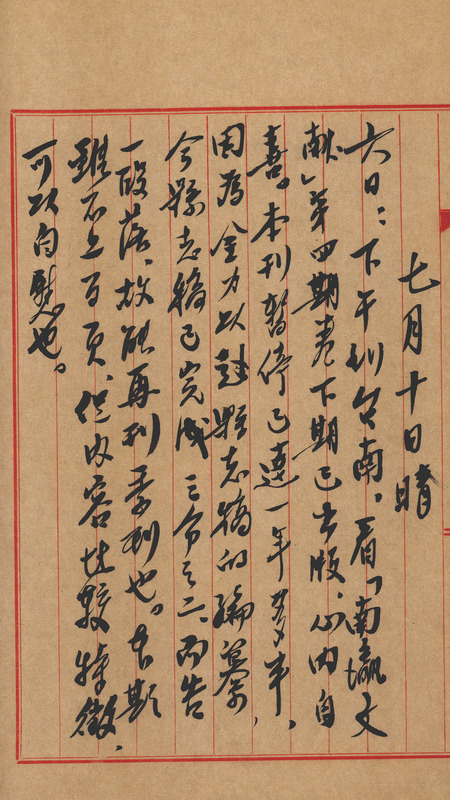 七月十日晴
六日：下午到台南。看「南瀛文
献」第四期卷下期已出版，心內自
喜。本刊暫停已達一年多半，
因為全力以赴縣志稿的編纂，
今縣志稿已完成三分之二、而告
一段落、故能再刊季刊也。本期
雖不上百頁、但內容比較特徵、
可以自慰也。